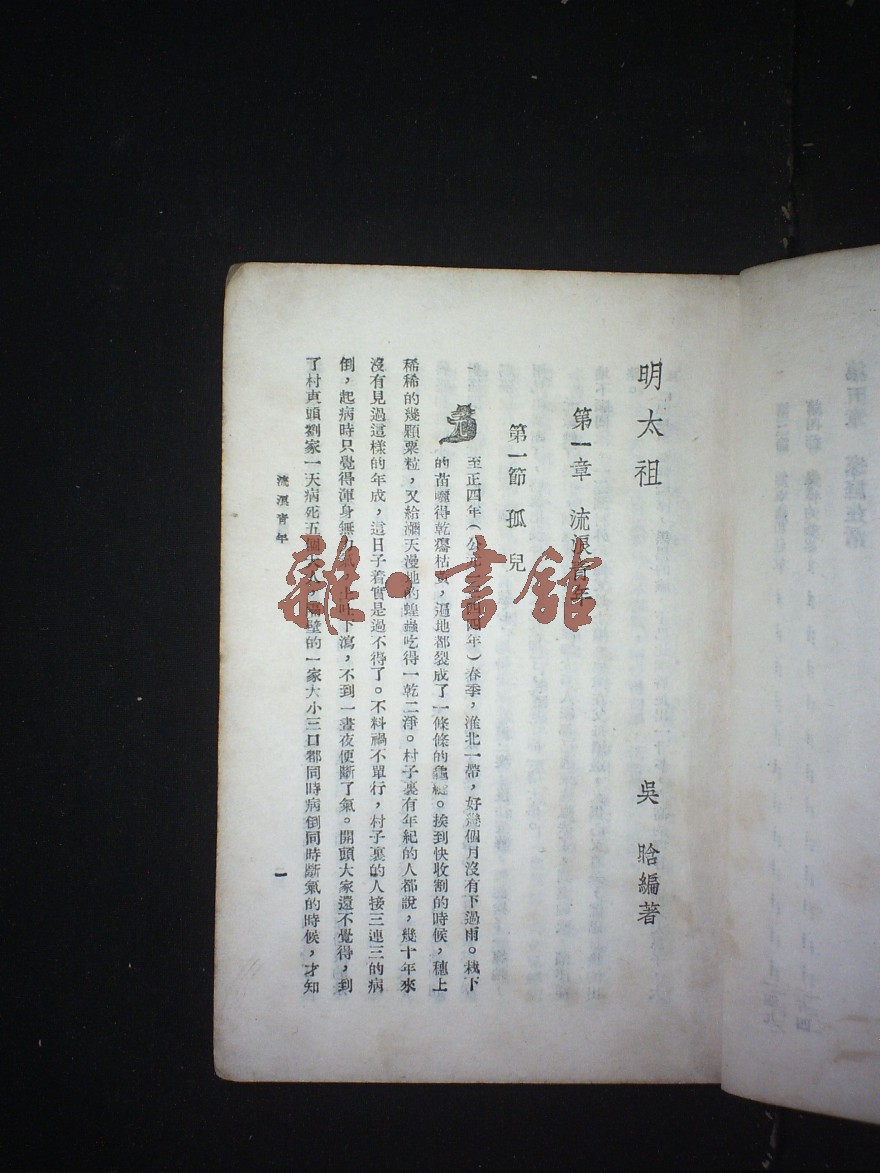 明太祖
吳晗編著
第一章 流浪青年
第一節 孤兒
至正四年(公元一三四四年)春季,淮北一帶,好幾個月沒有下過雨。栽下
的苗曬得乾癟枯黃,遍地都裂成了一條條的龜縫。挨到快收割的時候,穗上
稀稀的幾顆粟粒,又給瀰天漫地的蝗蟲吃得一乾二淨。村子裏有年紀的人都說,幾十年來
沒有見過這樣的年成,這日子着實是過不得了。不料禍不單行,村子裏的人接三連三的病
倒,起病時只覺得渾身無力 上吐下瀉,不到一晝夜便斷了氣。開頭大家還不覺得,到
了村東頭劉家一天病死五個大人,隔壁的一家大小三口都同時病倒同時斷氣的時候,才知
流浪青年
一
雜·書館